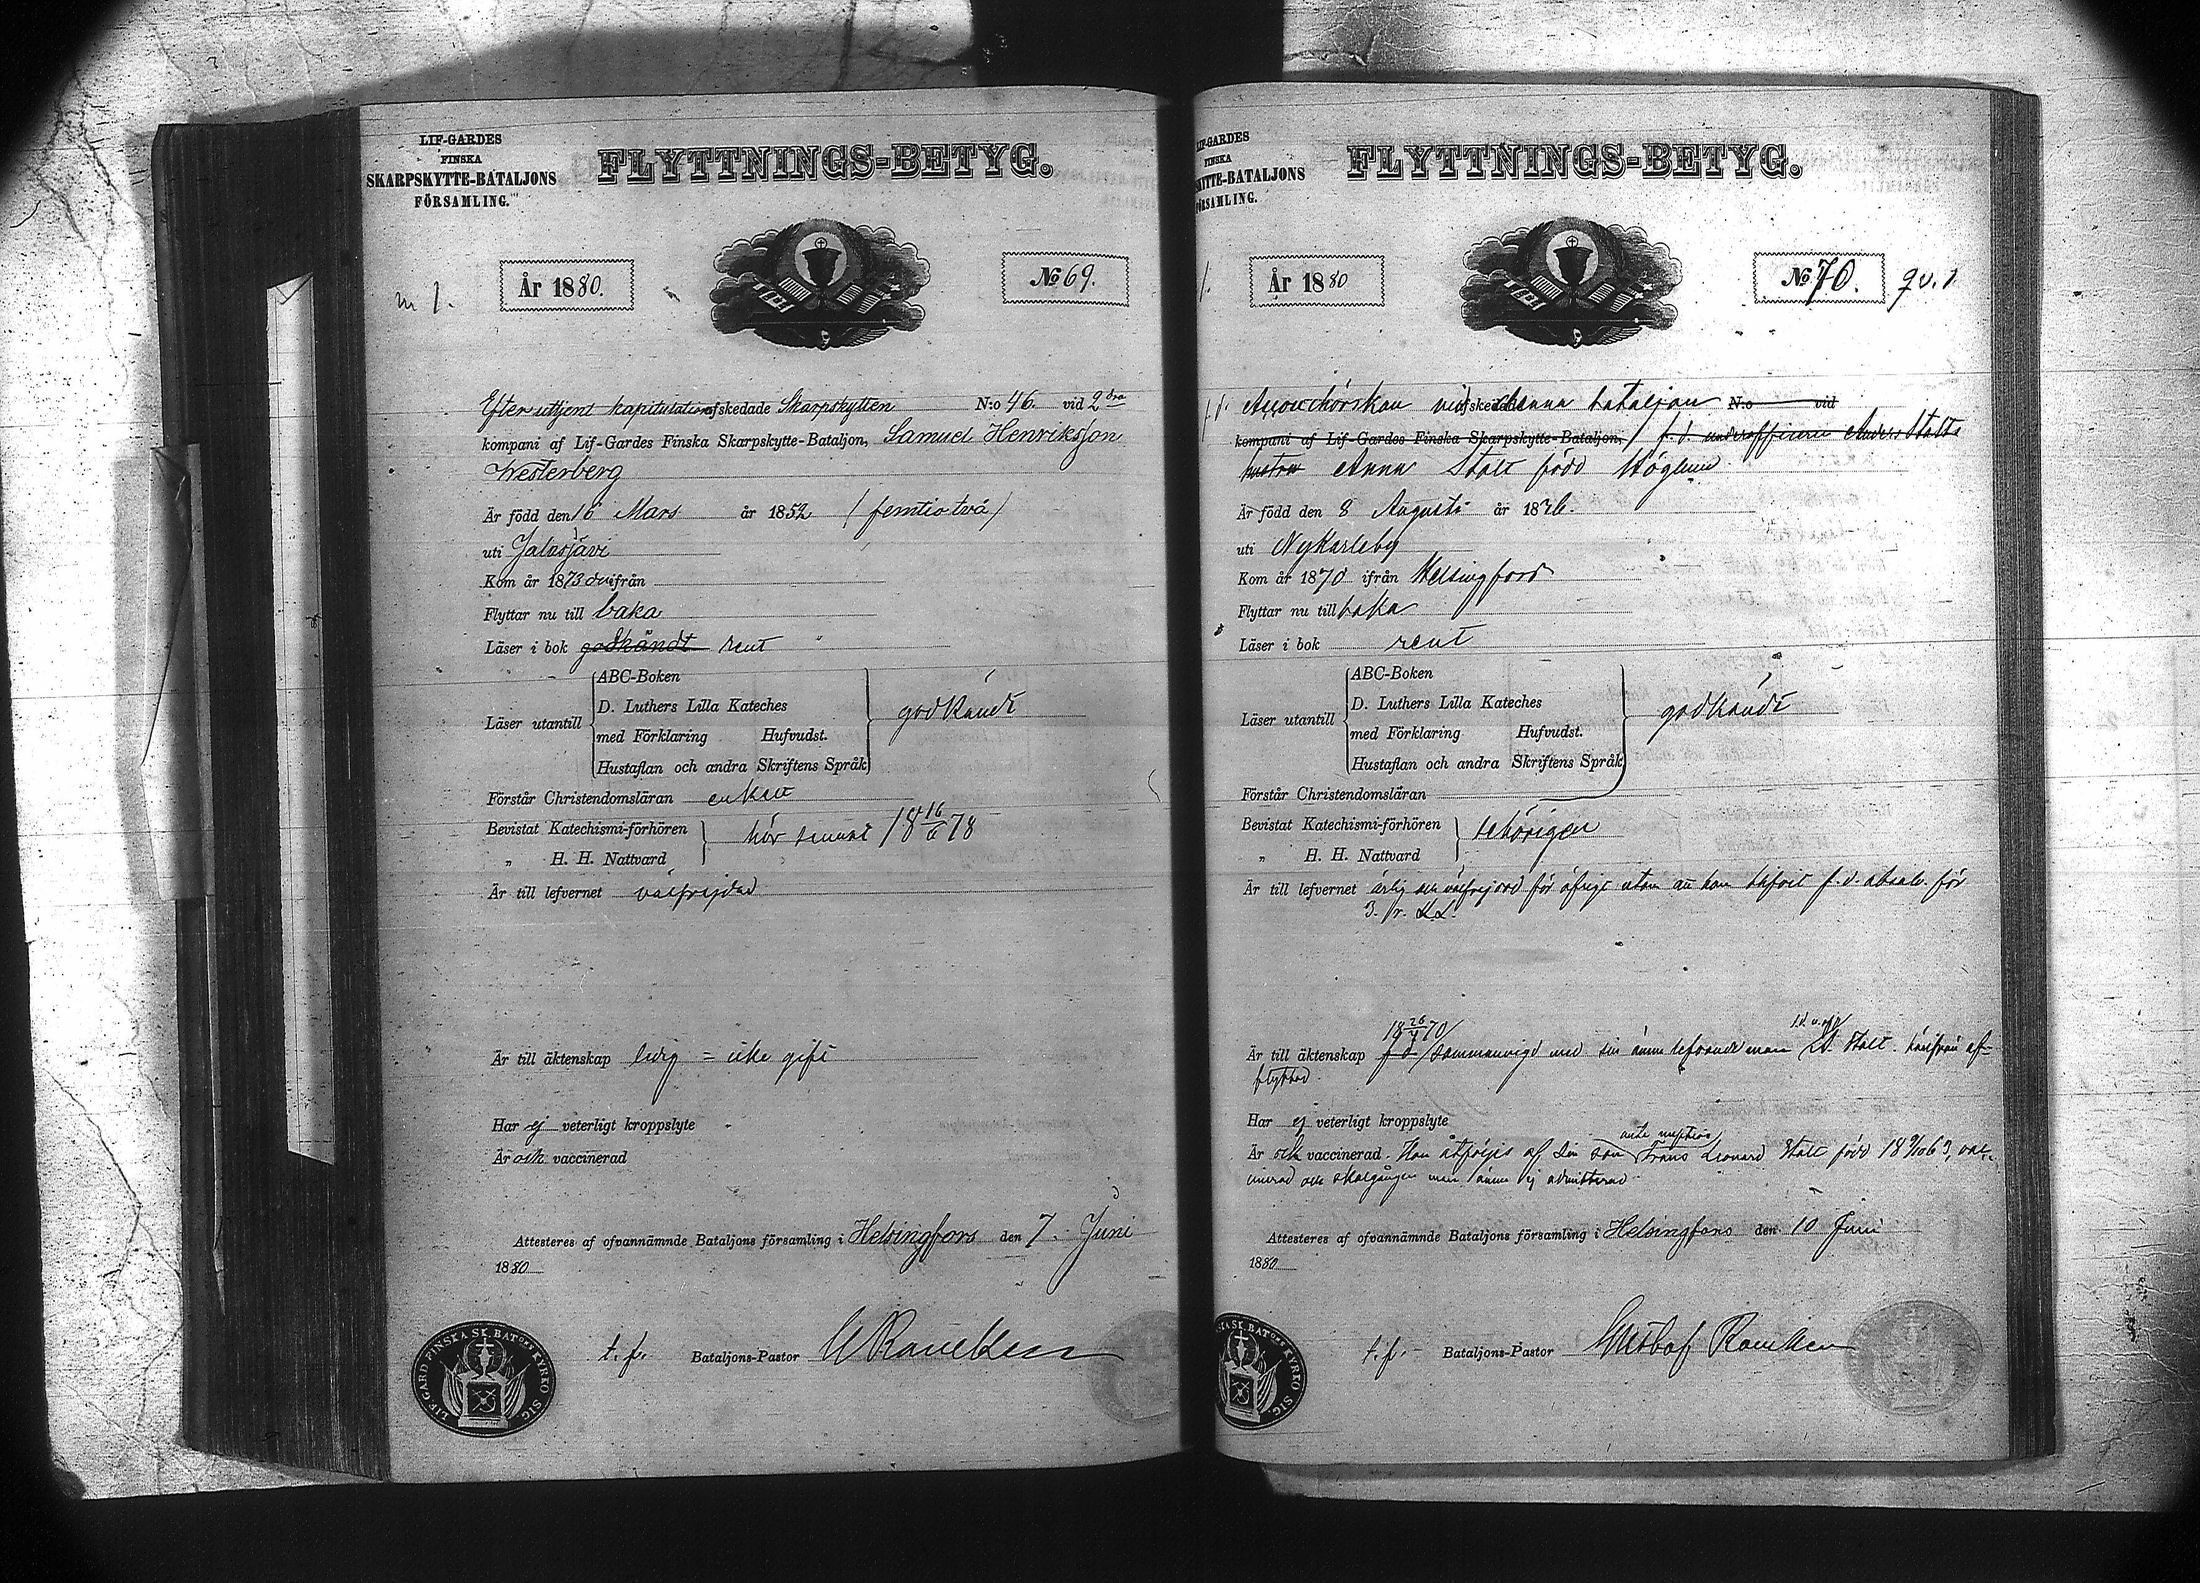 LIF-GARDES
FINSKA
SKARPSKYTTE-BATALJONS
FÖRSAMLING.
FLYTTNINGS-BETYG.
m 1.
År 1880.
No 69.
Efter uttjent kapitulation afskedade Skarpskytten N:o 46. vid 2dra
kompani af Lif-Gardes Finska Skarpskytte-Bataljon, Samuel Henriksson
Westerberg
Är född den 16 Mars år 1852 / femtio två /
uti Jalasjärvi
Kom år 1873 ifrån
Flyttar nu till baka
Läser i bok godkändt rent
Läser utantill
ABC-Boken
D. Luthers Lilla Kateches
med Förklaring Hufvudst.
Hustaflan och andra Skriftens Språk
godkändt
Förstår Christendomsläran enkelt
Bevistat Katechismi-förhören
" H. H. Nattvard
här senast 18 16/6 78
Är till lefvernet välfrejdad
Är till äktenskap ledig = icke gift
Har ej veterligt kroppslyte
Är och vaccinerad
Attesteres af ofvannämnde Bataljons församling i Helsingfors den 7. Juni
1880
t. f. Bataljons-Pastor
LIF-GARD FINSKA SK. BATONS KYRKO SIG.
LIF-GARDES
FINSKA
SKYTTE-BATALJONS
FÖRSAMLING.
FLYTTNINGS-BETYG.
År 1880
No 70.
vid afskedade denna bataljon N:o vid
kompani af Lif-Gardes Finska Skarpskytte-Bataljon, / f. d. underofficeren Anders Stolts
hustru Anna Stolt född Höglund
Är född den 8 Augusti år 1826.
uti Nykarleby
Kom år 1870 ifrån Helsingfors
Flyttar nu till baka
Läser i bok rent
Läser utantill
ABC-Boken
D. Luthers Lilla Kateches
med Förklaring Hufvudst.
Hustaflan och andra Skriftens Språk
godkändt
Förstår Christendomsläran
Bevistat Katechismi-förhören
" H. H. Nattvard
behörigen
Är till lefvernet ärlig och välfrejdad för öfrigt utom att hon
Är till äktenskap sammanvigd med sin ännu lefvande man A. Stolt. härifrån af-
flyttad.
Har ej veterligt kroppslyte
ante nuptias
Är och vaccinerad. Hon åtföljes af sin son Frans Leonard Stolt född 18 9/10 63, vac-
cinerad och skolgången men ännu ej admitterad
Attesteres af ofvannämnde Bataljons församling i Helsingfors den 10 Juni
1880
t. f. Bataljons-Pastor Gustaf
SKA SK. BATONS KYRKO SIG.